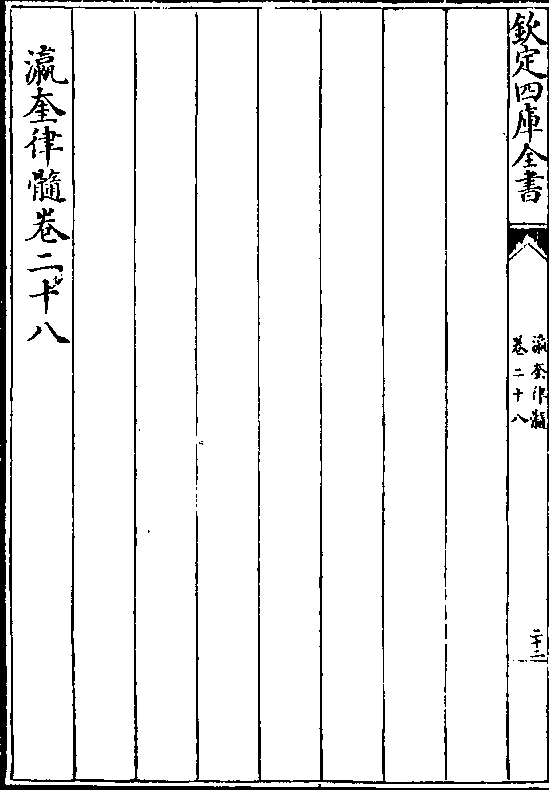 欽定四庫全書
瀛奎律髓
卷二十八
二十二
瀛奎律髓卷二十八